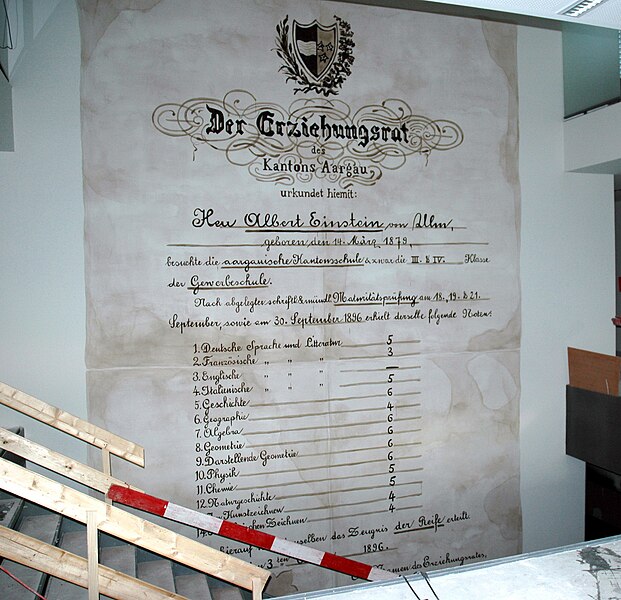 Der Erziehungsrat
des
Kantons Aargau
urkundet hiemit:
Herr Albert Einstein von Ulm,
geboren den 14. März 1879,
besuchte die aargauische Kantonsschule & zwar die III. & IV. Klasse
der Gewerbeschule.
Nach abgelegter schriftl. & mündl. Maturitätsprüfung am 18. 19. & 21.
September, sowie am 30. September 1896 erhielt derselbe folgende Noten:
1. Deutsche Sprache und Litteratur 5
2. Französische „ „ „ 3
3. Englische „ „ „ —
4. Italienische „ „ „ 5
5. Geschichte 6
6. Geographie 4
7. Algebra 6
8. Geometrie 6
9. Darstellende Geometrie 6
10. Physik 6
11. Chemie 5
12. Naturgeschichte 5
Kunstzeichnen 4
14. Zeichnen 4
hierauf das Zeugnis der Reife erteilt.
den 3.ten 1896.
Namen des Erziehungsrates,